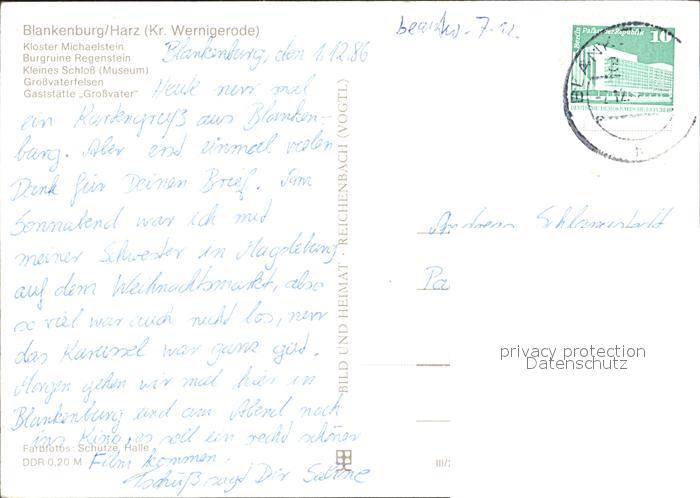 Blankenburg/Harz (Kr. Wernigerode)
Kloster Michaelstein
Burgruine Regenstein
Kleines Schloß (Museum)
Großvaterfelsen
Gaststätte „Großvater"
Blankenburg, den 1.12.86
Heute nur mal
ein Kartengruß aus Blanken-
burg. Aber erst einmal vielen
Dank für Deinen Brief. Am
Sonnabend war ich mit
meiner Schwester in Magdeburg
auf dem Weihnachtsmarkt, also
so viel war auch nicht los, nur
das Karussel war ganz gut.
Morgen gehen wir mal hier in
Blankenburg und am Abend noch
ins Kino, es soll ein recht schöner
Film kommen.
Tschüß sagt Dir Sabine
Farbfotos: Schütze, Halle
DDR 0,20 M
BILD UND HEIMAT · REICHENBACH (VOGTL)
7.12.
Berlin Palast der Republik 10
DEUTSCHE DEMOKRATISCHE REPUBLIK
BLANK
Andreas
Pa
privacy protection
Datenschutz
III/